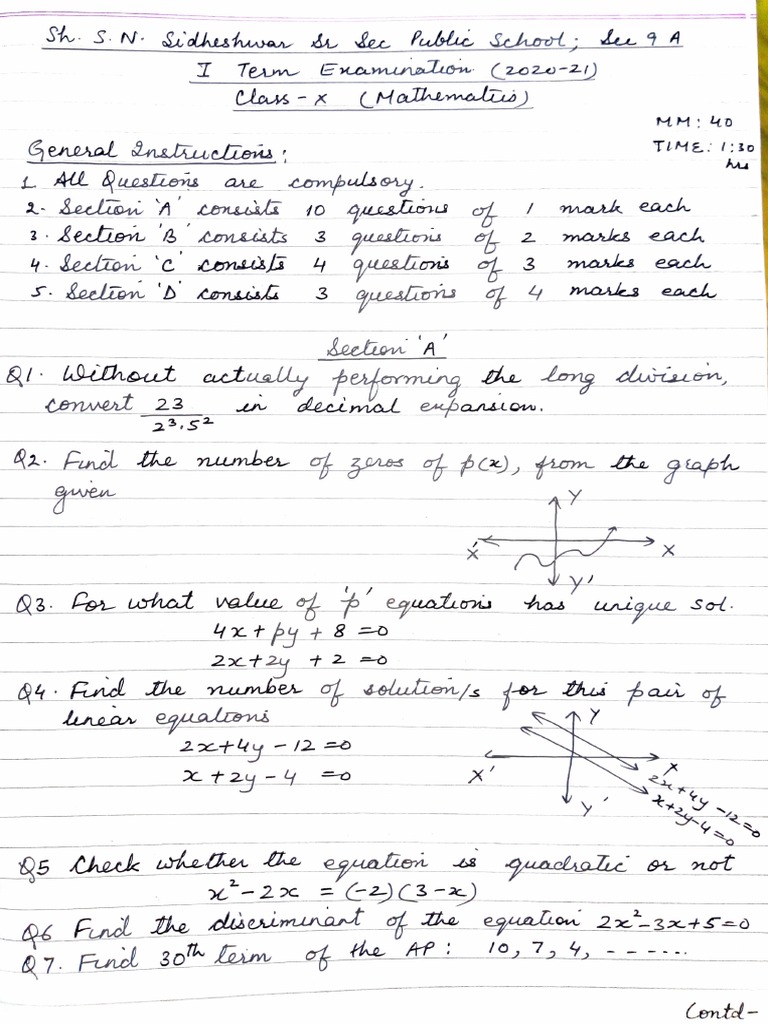 Sh. S. N. Sidheshwar Sr Sec Public School; Sec 9 A
I Term Examination (2020-21)
Class - X (Mathematics)
MM: 40
TIME: 1:30 hrs
General Instructions:
1. All Questions are compulsory.
2. Section 'A' consists 10 questions of 1 mark each
3. Section 'B' consists 3 questions of 2 marks each
4. Section 'C' consists 4 questions of 3 marks each
5. Section 'D' consists 3 questions of 4 marks each
Section 'A'
Q1. Without actually performing the long division,
convert 23/(2³·5²) in decimal expansion.
Q2. Find the number of zeros of p(x), from the graph
given
Y
X' X
Y'
Q3. For what value of 'p' equations has unique sol.
4x + py + 8 = 0
2x + 2y + 2 = 0
Q4. Find the number of solution/s for this pair of
linear equations
2x + 4y - 12 = 0
x + 2y - 4 = 0
Y
X' X
Y'
2x + 4y - 12 = 0
x + 2y - 4 = 0
Q5 Check whether the equation is quadratic or not
x² - 2x = (-2)(3 - x)
Q6 Find the discriminant of the equation 2x² - 3x + 5 = 0
Q7. Find 30th term of the AP: 10, 7, 4, - - - - ...
Contd-